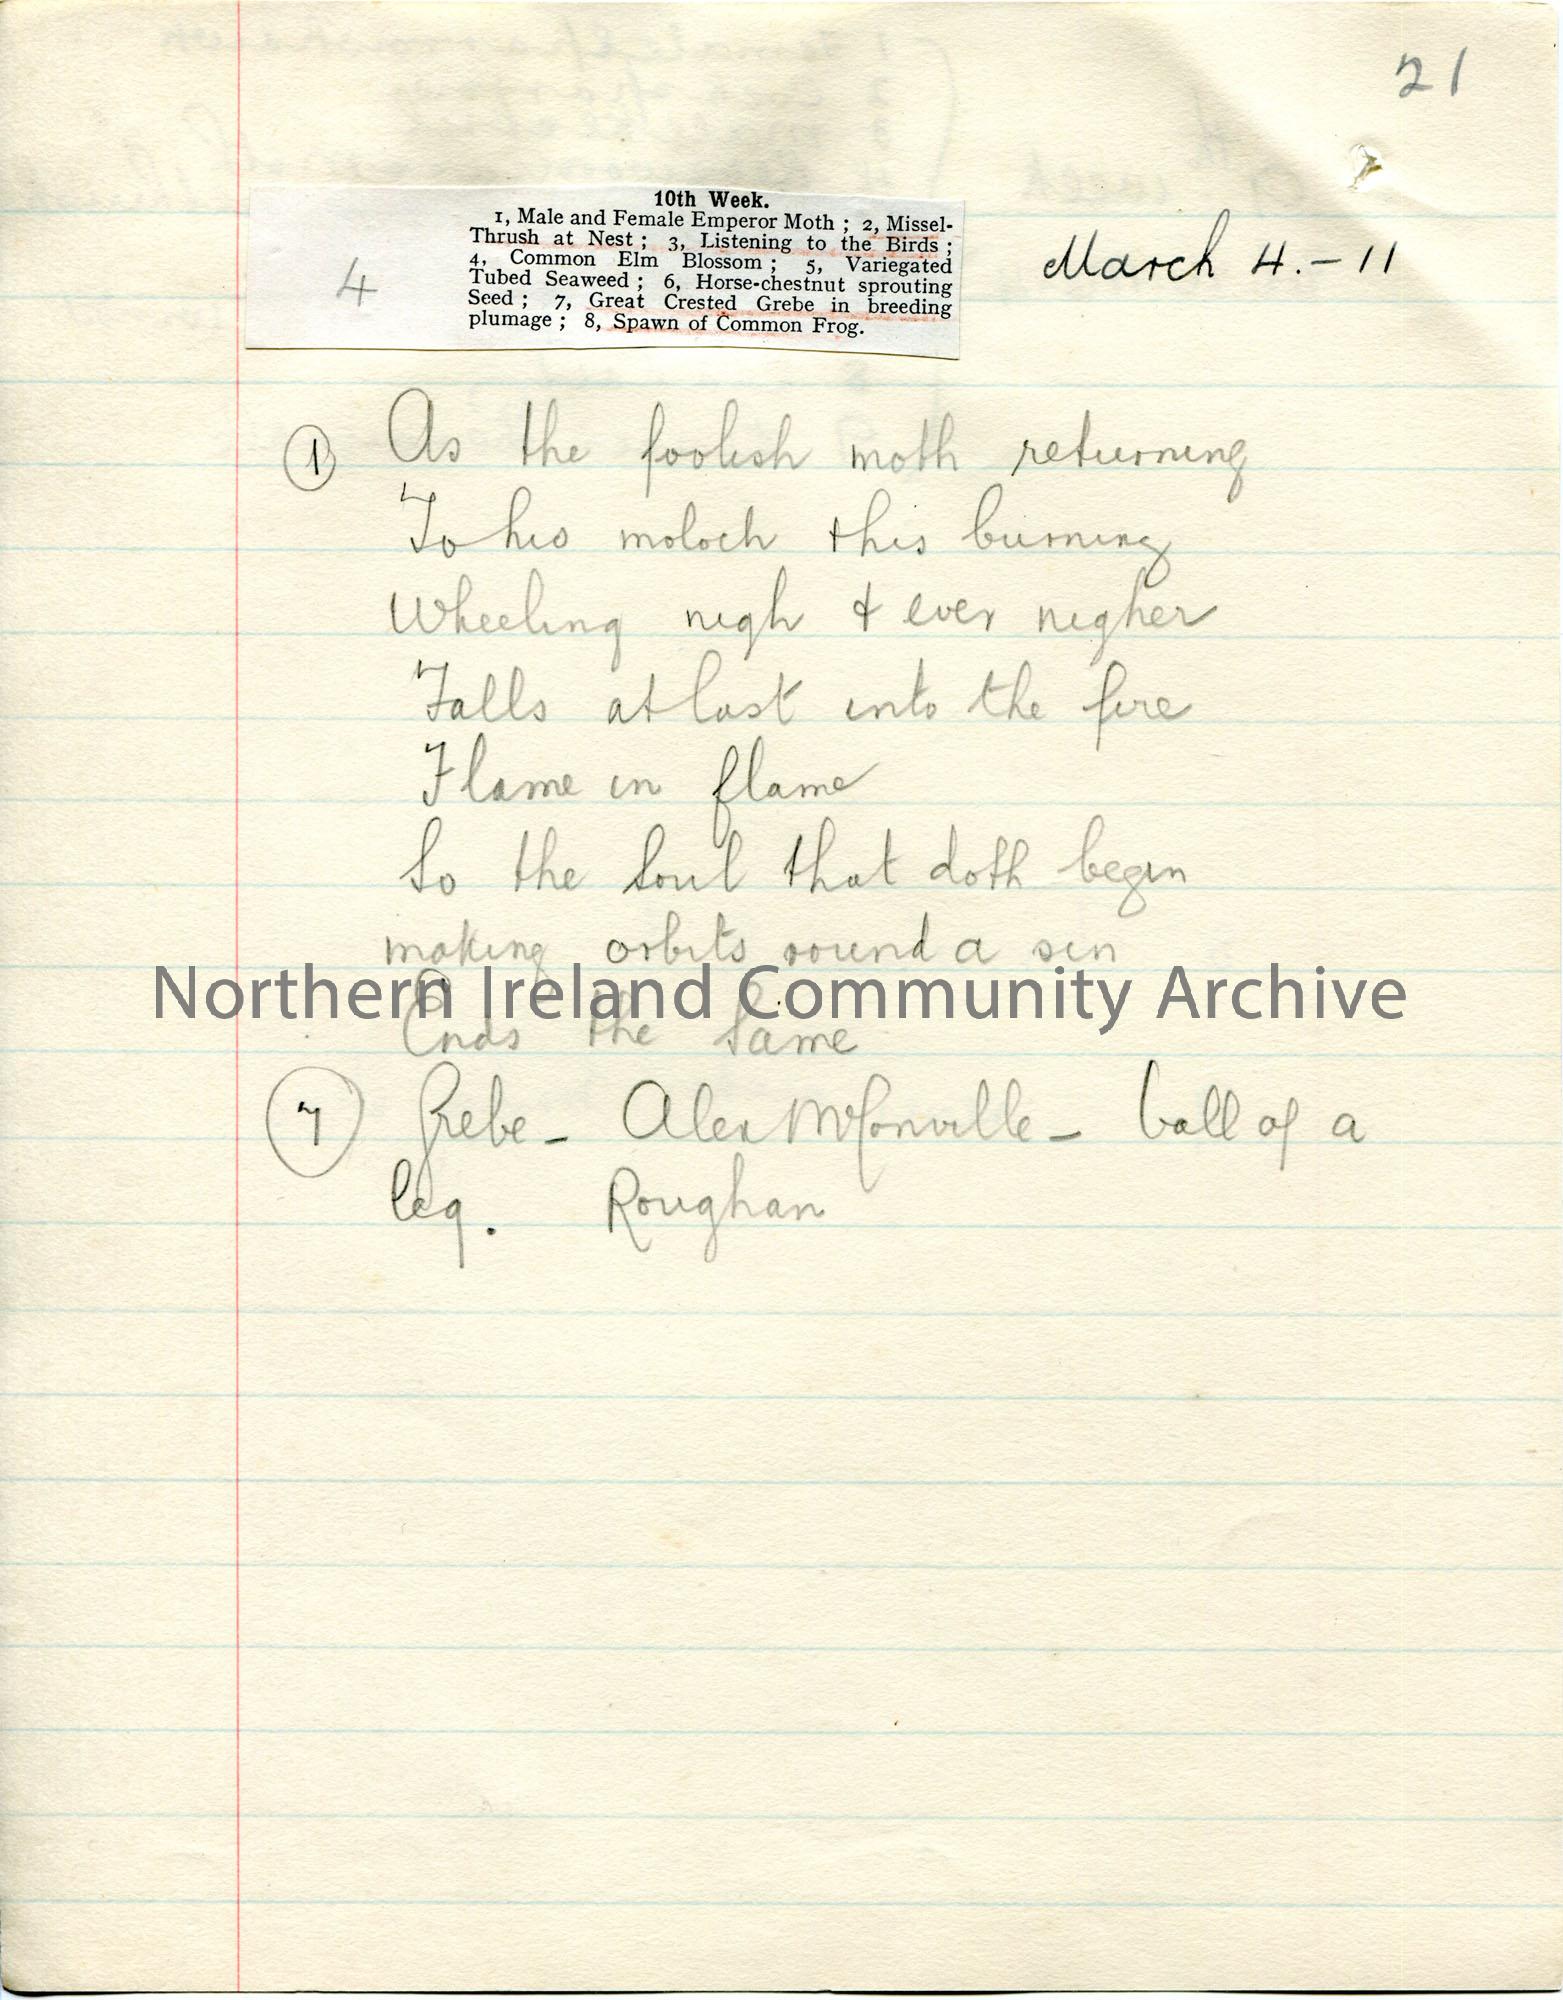 21
10th Week.
1, Male and Female Emperor Moth ; 2, Missel-
Thrush at Nest ; 3, Listening to the Birds ;
4, Common Elm Blossom ; 5, Variegated
Tubed Seaweed ; 6, Horse-chestnut sprouting
Seed ; 7, Great Crested Grebe in breeding
plumage ; 8, Spawn of Common Frog.
4
March 4.-11
1 As the foolish moth returning
To his moloch this burning
Wheeling nigh & ever nigher
Falls at last into the fire
Flame in flame
So the soul that doth begin
making orbits round a sin
Northern Ireland Community Archive
Ends the same
7 Grebe - Alex McConville - ball of a
leg. Roughan